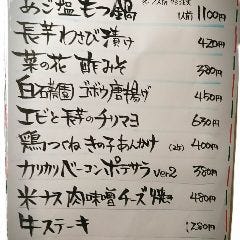 あご塩もつ鍋 1人前 1100円
長芋わさび漬け 420円
菜の花 酢みそ 380円
白石農園 ゴボウ唐揚げ 450円
エビと長芋のチリマヨ 630円
鶏つくね きの子あんかけ (2本) 400円
カリカリベーコンポテサラ ver2 380円
米ナス 肉味噌チーズ焼き 480円
牛ステーキ 1280円